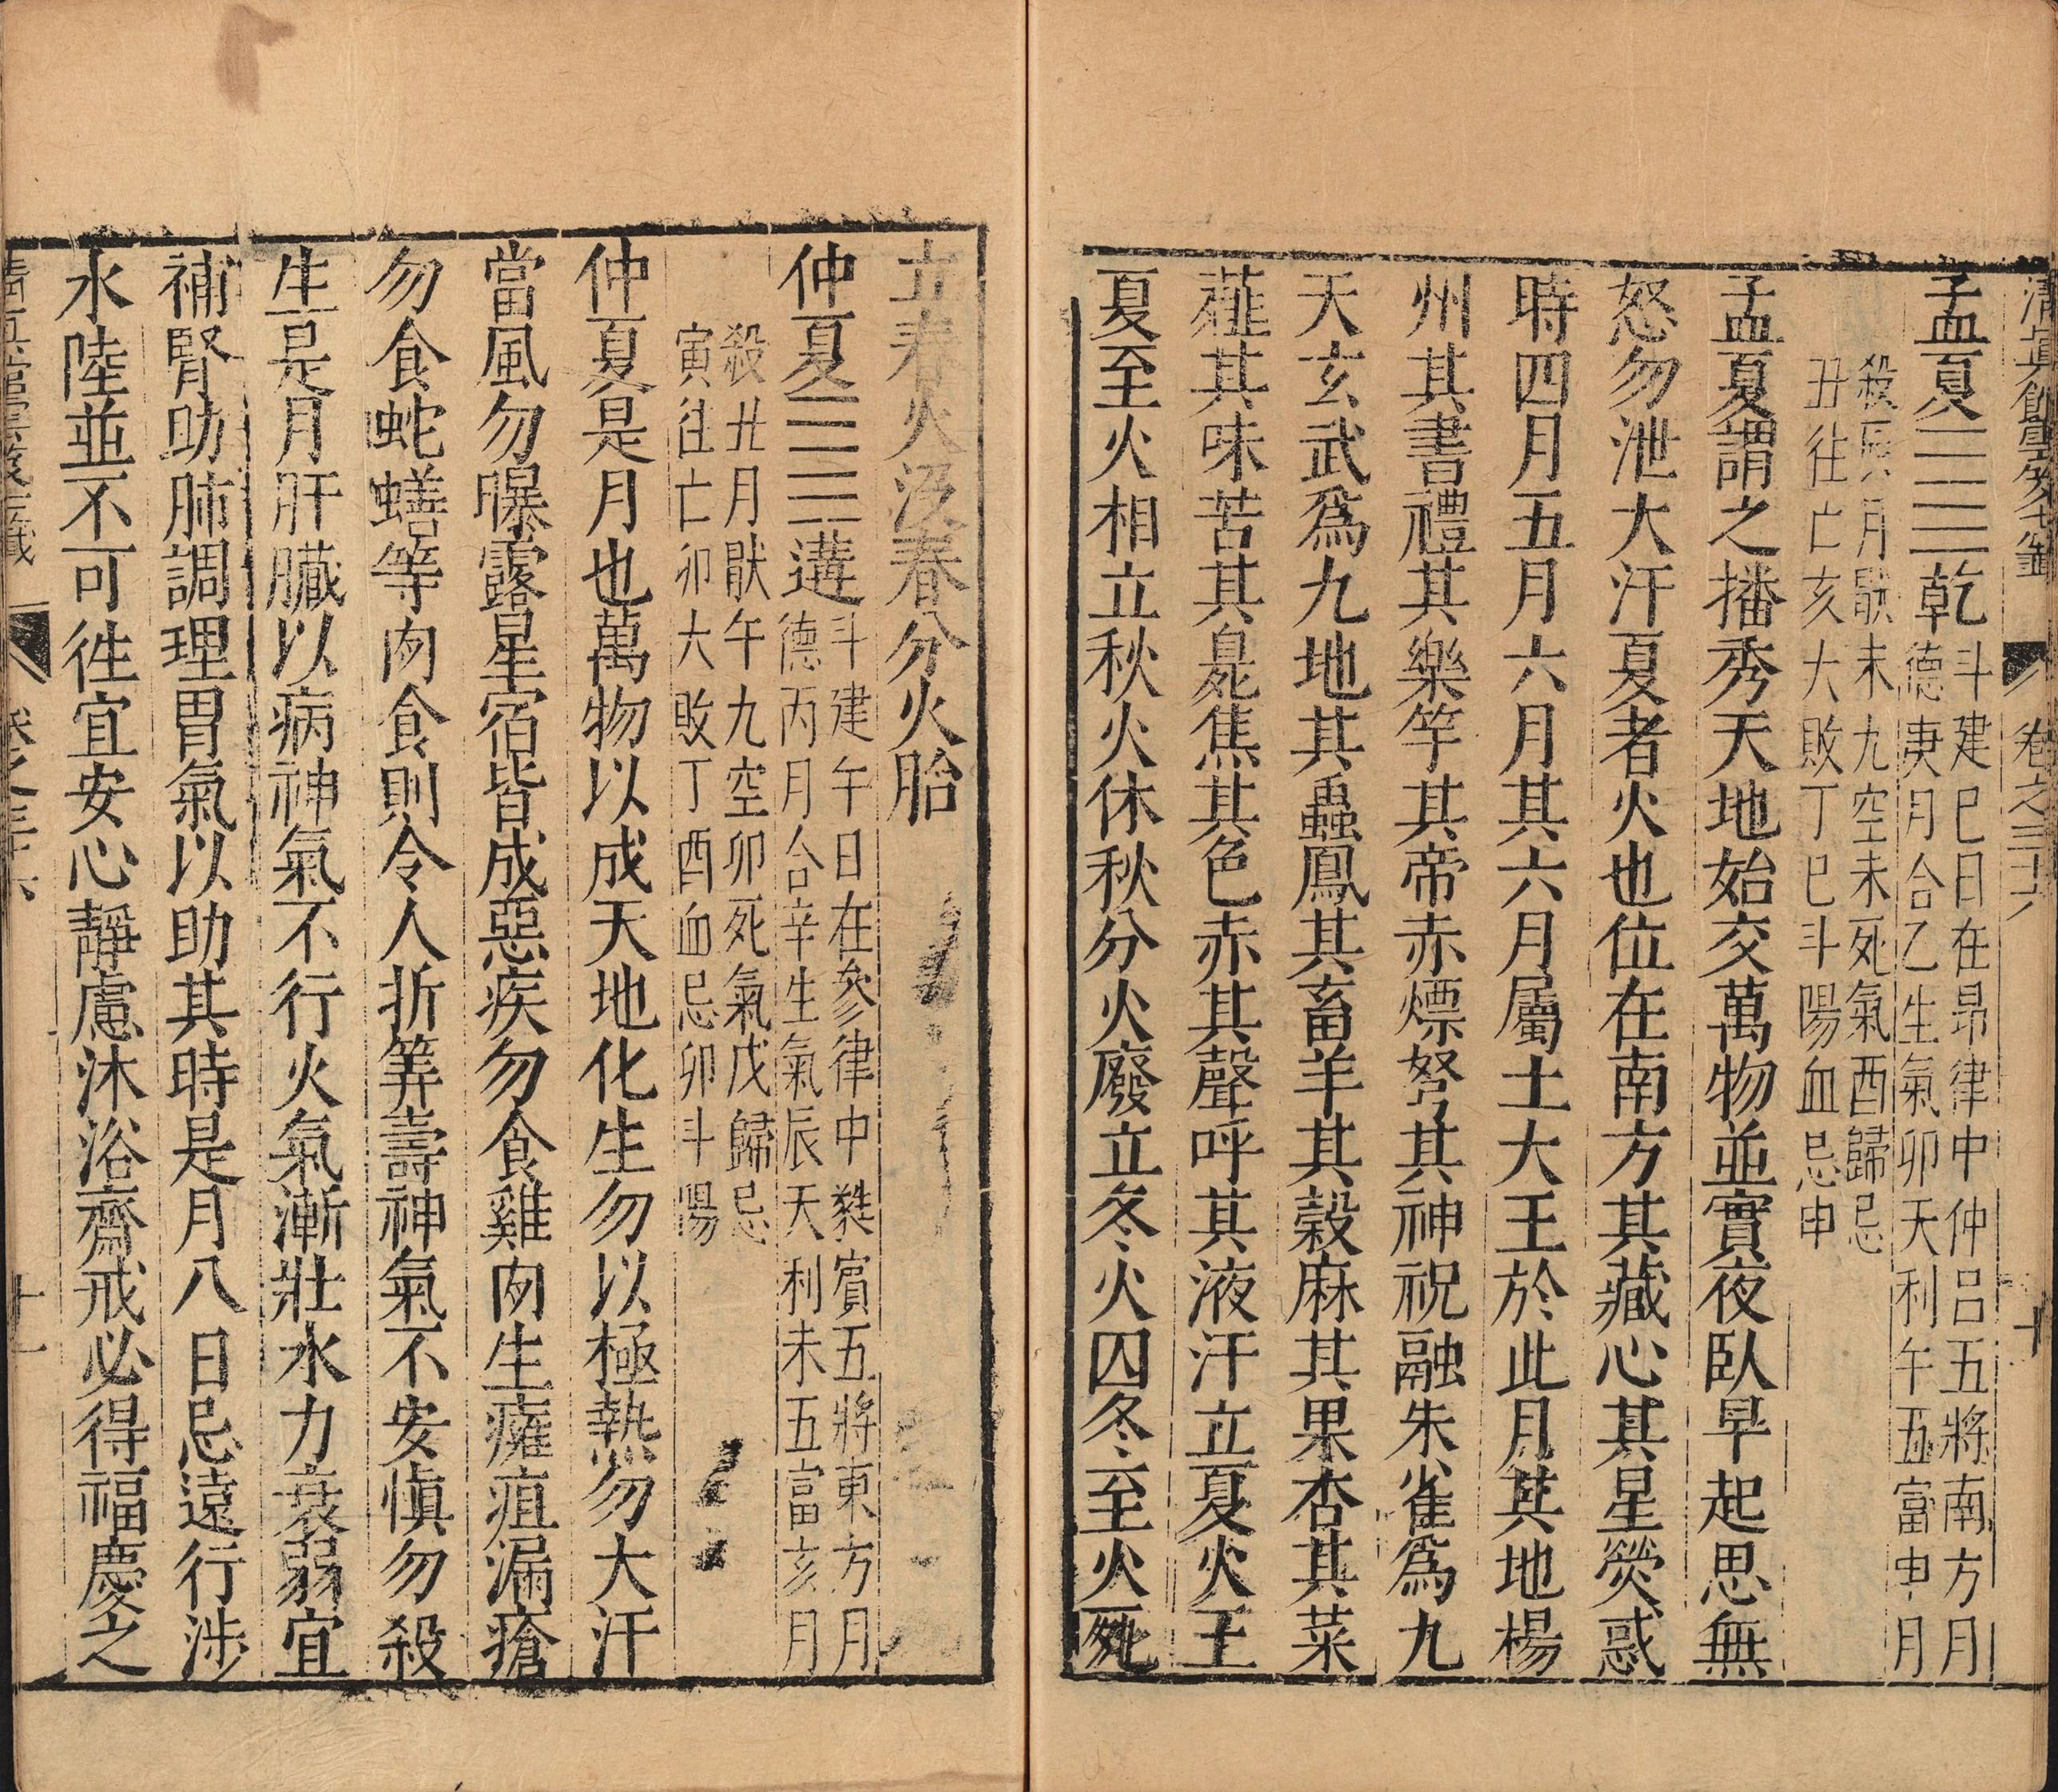 卷之三十六
十
孟夏☰☰乾斗建巳日在昴律中仲呂五將南方月
德庚月合乙生氣卯天利午五富申月
殺辰月猒未九空未死氣酉歸忌
丑往亡亥大敗丁巳斗陽血忌申
孟夏謂之播秀天地始交萬物並實夜臥早起思無
怒勿泄大汗夏者火也位在南方其藏心其星熒惑
時四月五月六月其六月屬土大王於此月其地楊
州其書禮其樂竽其帝赤熛弩其神祝融朱雀爲九
天玄武爲九地其蟲鳳其畜羊其穀麻其果杏其菜
薤其味苦其臭焦其色赤其聲呼其液汗立夏火王
夏至火相立秋火休秋分火廢立冬火囚冬至火死
立春火沒春分火胎
仲夏☰☰遘斗建午日在參律中蕤賓五將東方月
德丙月合辛生氣辰天利未五富亥月
殺丑月猒午九空卯死氣戊歸忌
寅往亡卯大敗丁酉血忌卯斗陽
仲夏是月也萬物以成天地化生勿以極熱勿大汗
當風勿曝露星宿皆成惡疾勿食雞肉生癰疽漏瘡
勿食蛇蟮等肉食則令人折筭壽神氣不安愼勿殺
生是月肝臟以病神氣不行火氣漸壯水力衰弱宜
補腎助肺調理胃氣以助其時是月八日忌遠行涉
水陸並不可徃宜安心靜慮沐浴齋戒必得福慶之
十一